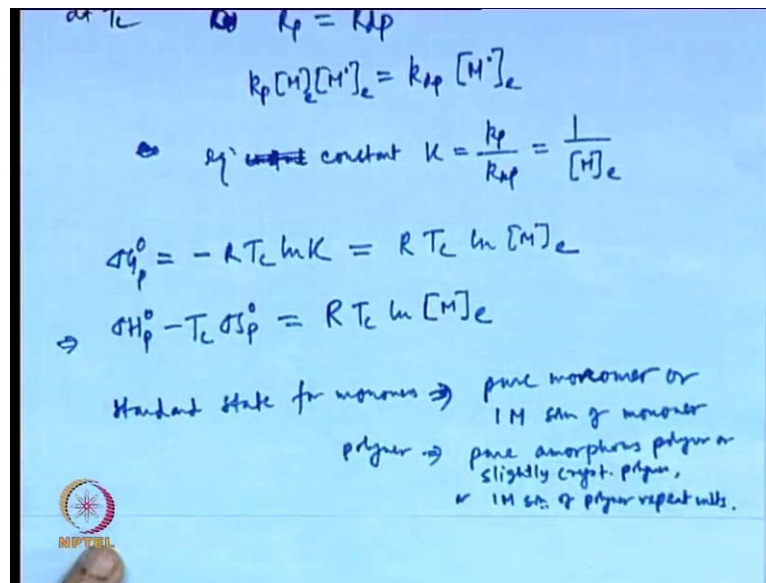 at Tc Rp = Rdp
kp[M]e[M·]e = kdp [M·]e
eq^n constant K = kp/kdp = 1/[M]e
ΔGp° = - R Tc ln K = R Tc ln [M]e
⇒ ΔHp° - Tc ΔSp° = R Tc ln [M]e
Standard state for monomer ⇒ pure monomer or
1M soln of monomer
polymer ⇒ pure amorphous polymer or
slightly cryst. polymer,
or 1M soln. of polymer repeat units.
NPTEL